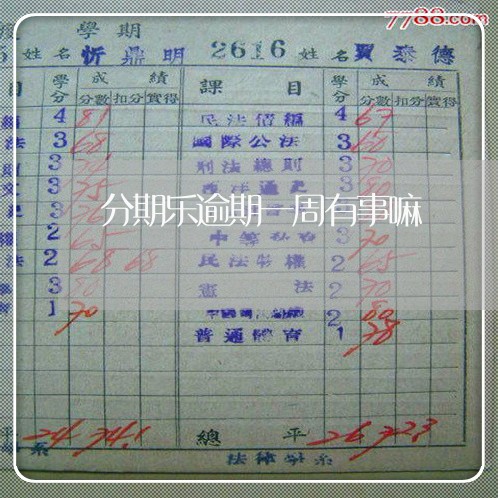 7788.com
學期
姓名 忻鼎明 2616 姓名 賈泰德
目 學分 成績 課目 學分 成績
分數 扣分 實得 分數 扣分 實得
4 81 民法債編 4 67
法 3 68 國際公法 3 60
3 刑法總則 3 70
3 75 西洋通史 3
分期乐逾期一周有事嘛
3
2 65 3 70
法 2 68 68 民法物權 2 65
3 80 憲法 2 70
1 70 2 80
普通體育 1 78
平 24 74.1 總平 26 72.3
系 法律學系